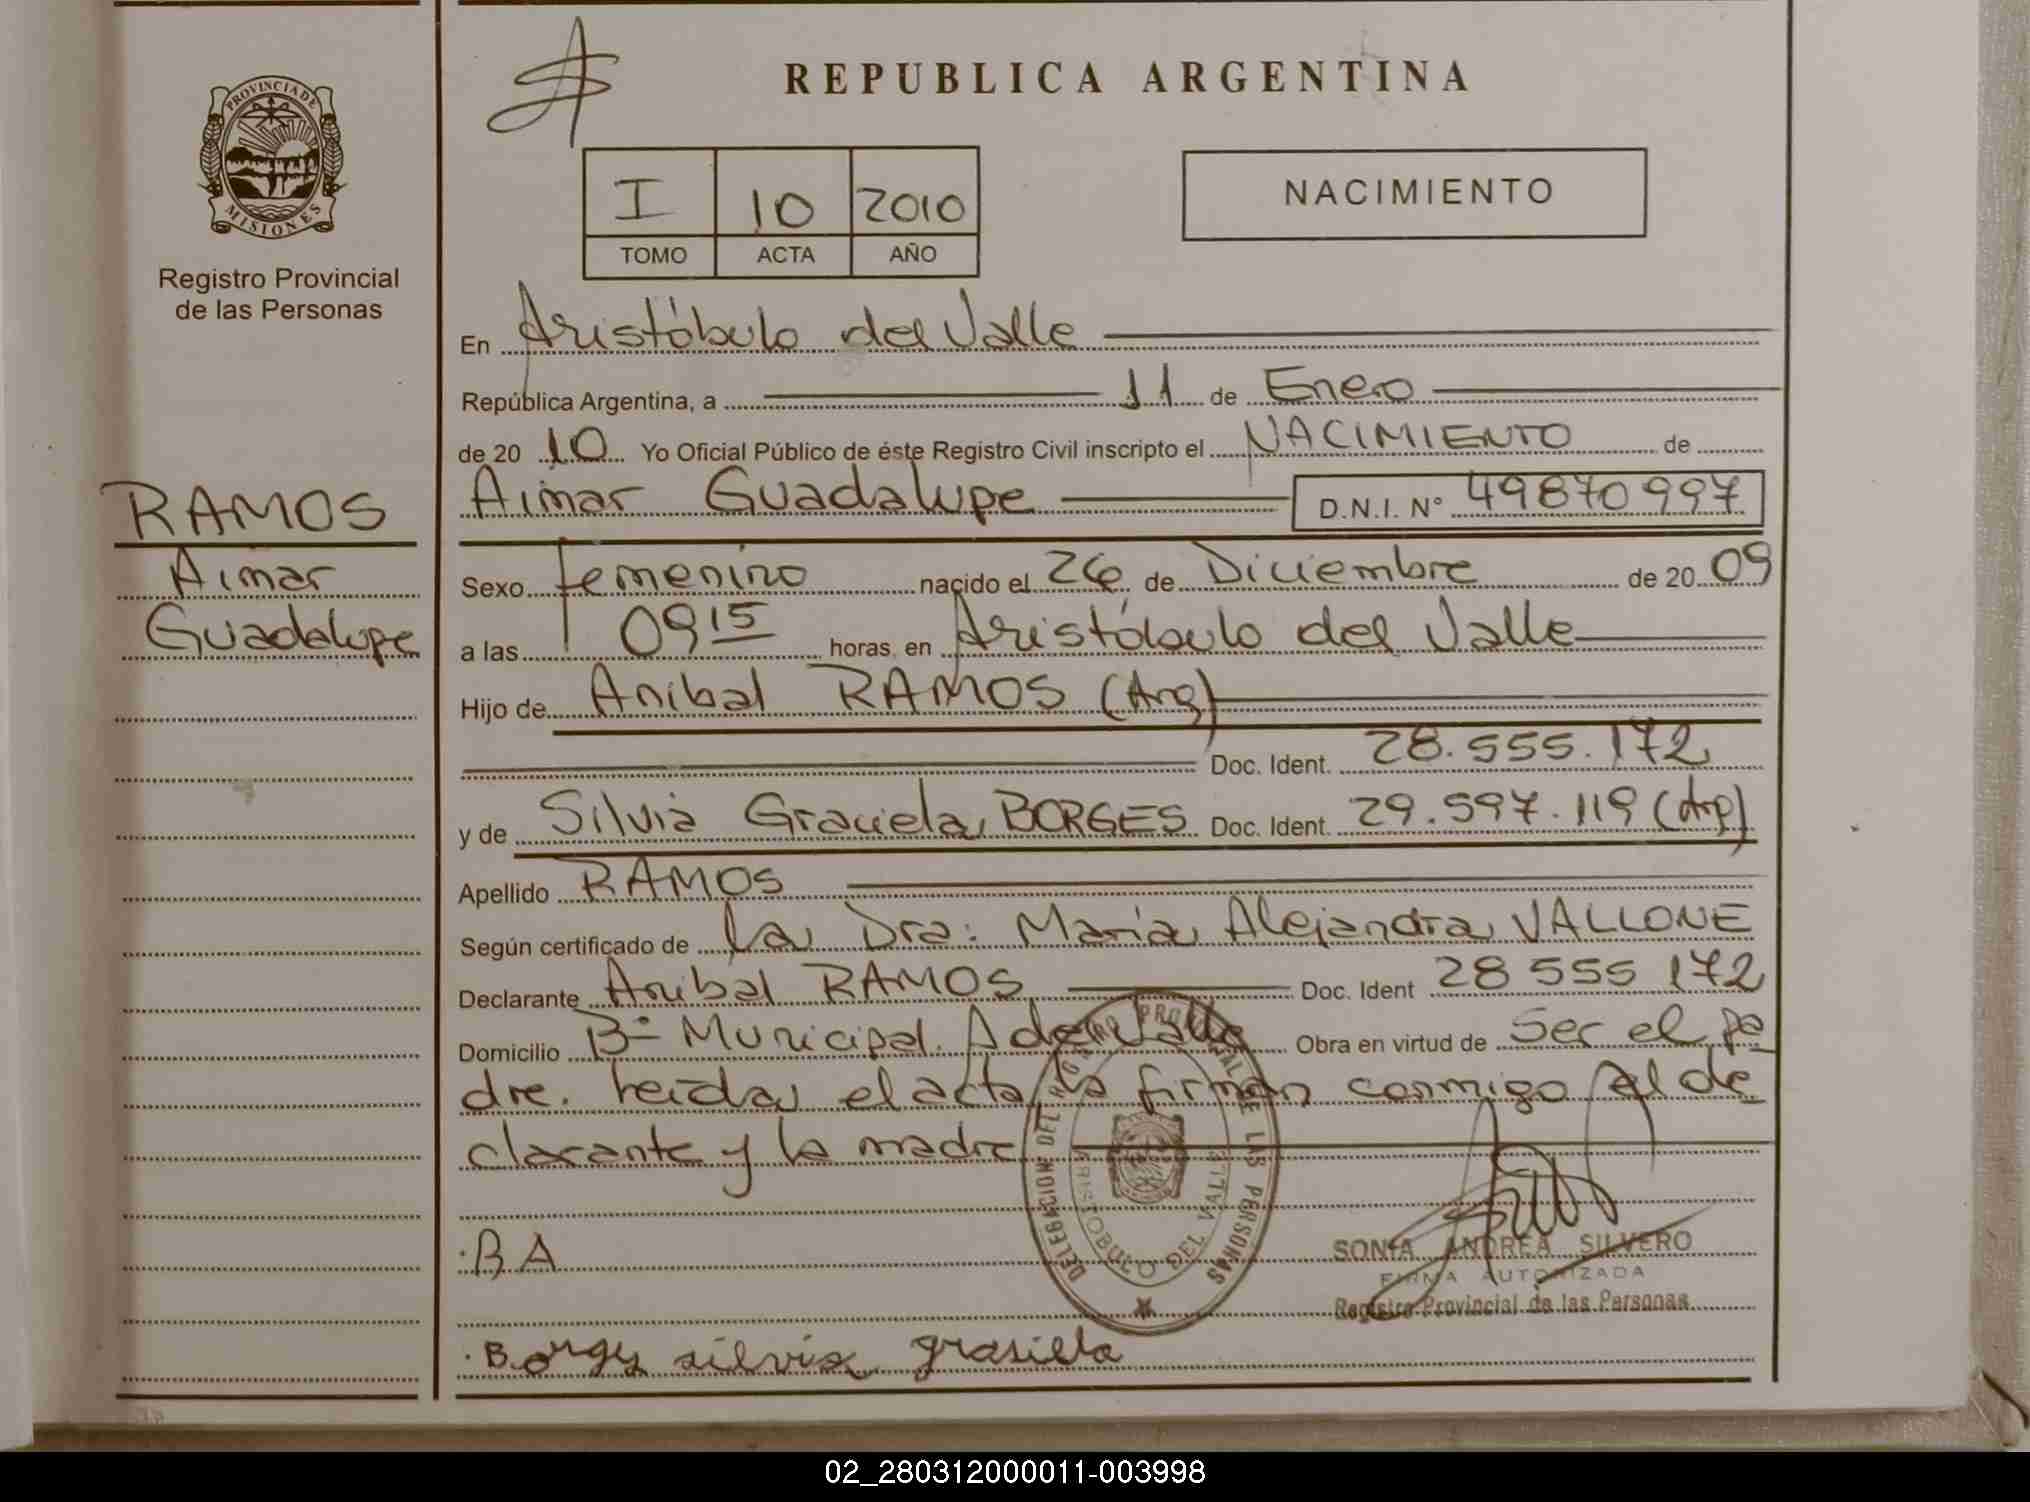 PROVINCIA DE
MISIONES
Registro Provincial
de las Personas
RAMOS
Aimar
Guadalupe
REPUBLICA ARGENTINA
I 10 2010
TOMO ACTA AÑO
NACIMIENTO
En Aristóbulo del Valle
República Argentina, a 11 de Enero
de 20 10 Yo Oficial Público de éste Registro Civil inscripto el NACIMIENTO de
Aimar Guadalupe D.N.I. Nº 49870997
Sexo femenino nacido el 26 de Diciembre de 20 09
a las 09 15 horas, en Aristóbulo del Valle
Hijo de Anibal RAMOS (Arg)
Doc. Ident. 28.555.172
y de Silvia Graciela BORGES Doc. Ident. 29.597.119 (Arg)
Apellido RAMOS
Según certificado de La Dra: María Alejandra VALLONE
Declarante Anibal RAMOS Doc. Ident 28 555 172
Domicilio Bº Municipal. A del Valle Obra en virtud de ser el pa
dre. Leída el acta la firman conmigo el de
clarante y la madre
DELEGACION DEL REGISTRO PROVINCIAL DE LAS PERSONAS
ARISTOBULO DEL VALLE
RA
SONIA ANDREA SILVERO
FIRMA AUTORIZADA
Registro Provincial de las Personas
Borges silvia grasiela
02_280312000011-003998